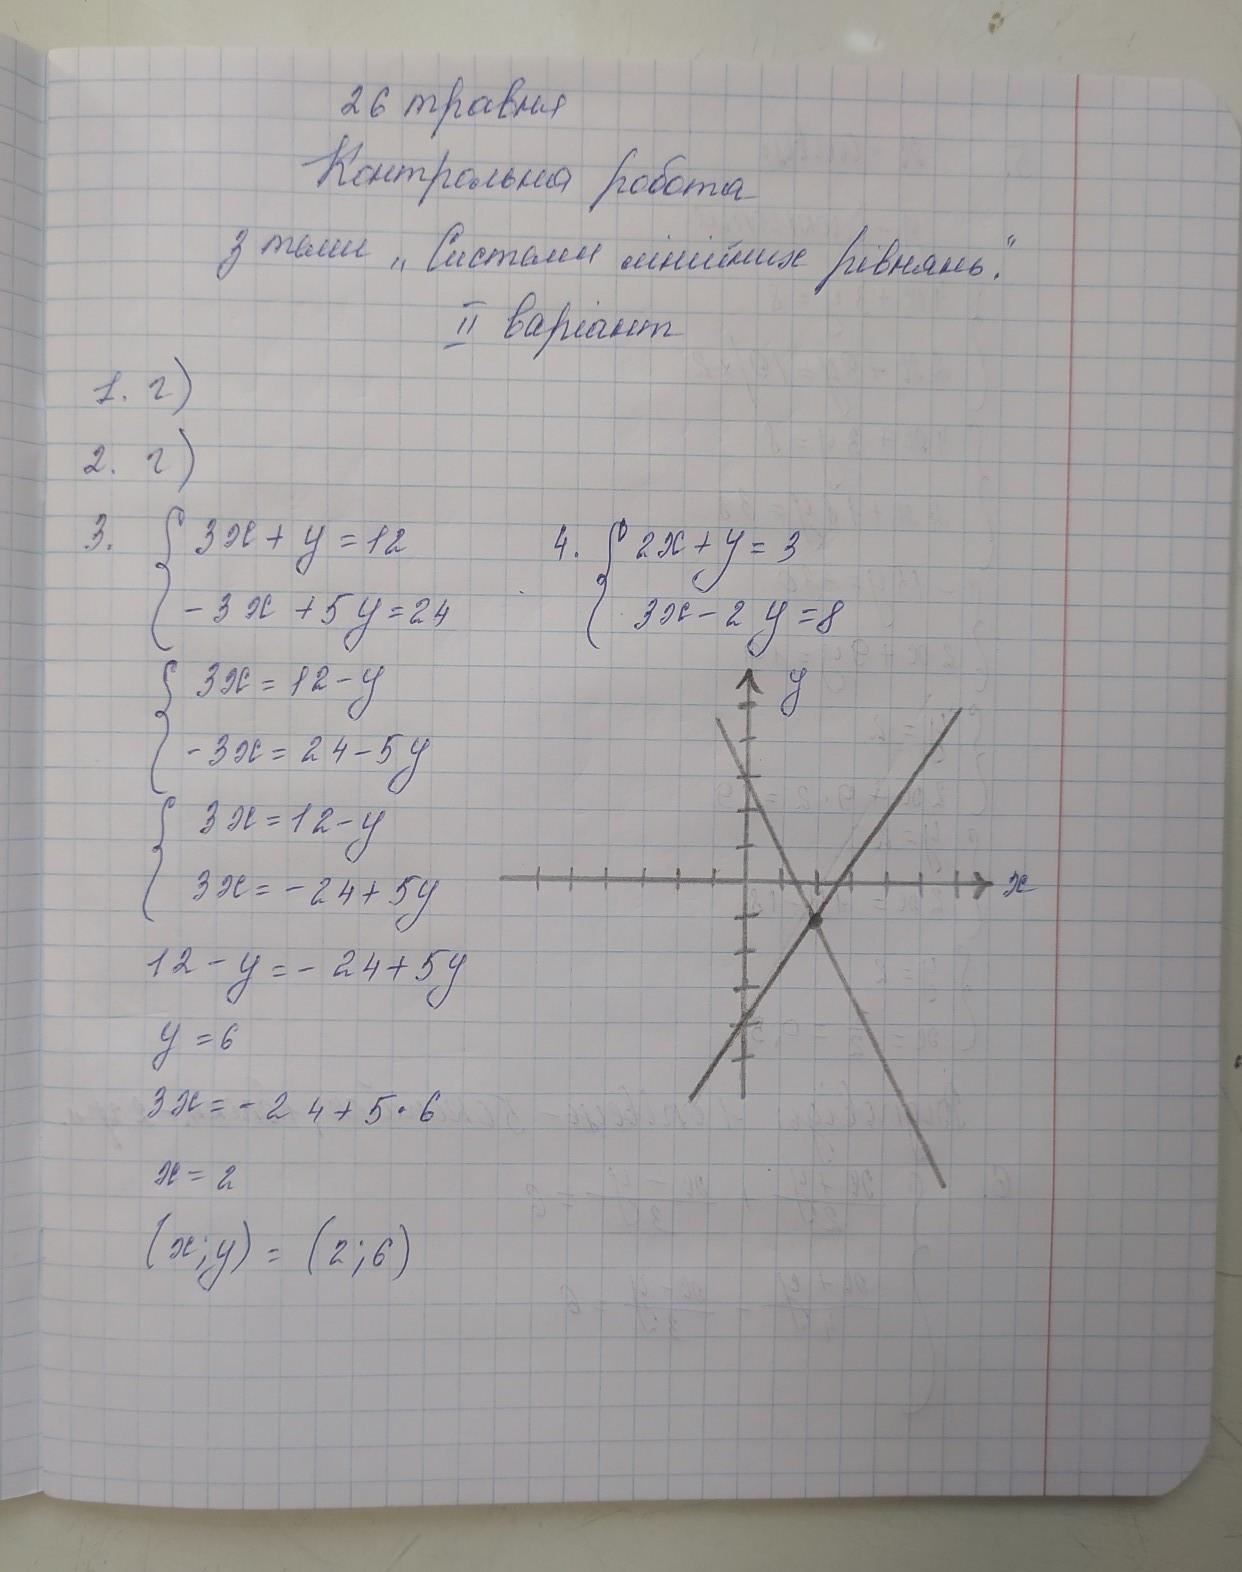 26 травня
Контрольна робота
з теми „Системи лінійних рівнянь."
II варіант
1. г)
2. г)
3. 3x + y = 12
-3x + 5y = 24
3x = 12 - y
-3x = 24 - 5y
3x = 12 - y
3x = - 24 + 5y
12 - y = - 24 + 5y
y = 6
3x = - 24 + 5 · 6
x = 2
(x; y) = (2; 6)
4. 2x + y = 3
3x - 2y = 8
y
x